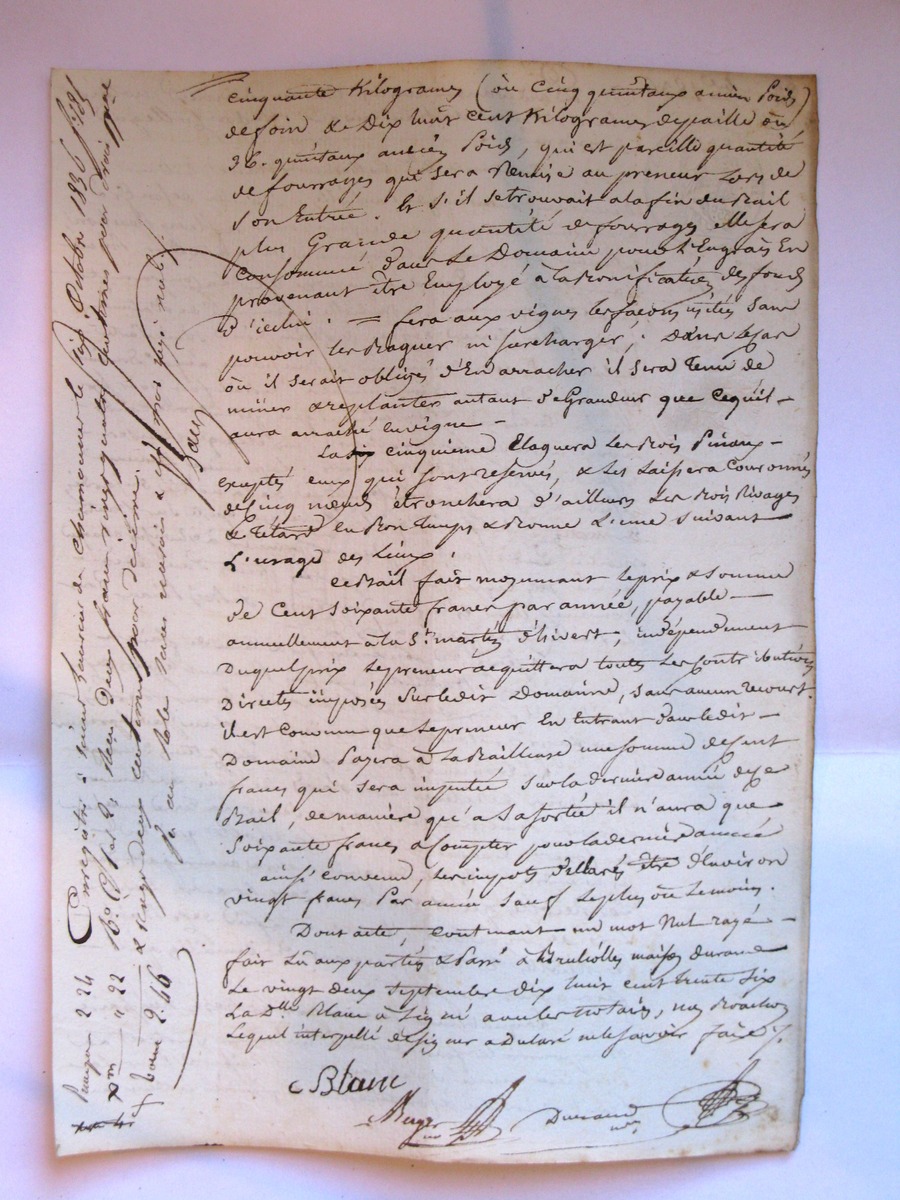 cinquante Kilogrames (ou Cinq quintaux ancien Poids)
de foin & Dix huit cent Kilogrames de paille ou
36. quintaux ancien Poids, qui est pareille quantité
de fourrages qui sera Remise au preneur Lors de
Son Entrée. Et S'il se trouvait a la fin du Bail
plus Grande quantité de fourrages elle sera
Consommée dans Le Domaine pour L'Engrais En
provenant être Employé à la Bonification des fonds
d'icelui. = fera aux vignes les façons usitées sans
pouvoir les Braguer ni Surcharger; Dans le Cas
ou il serait obligé d'En arracher il sera Tenu de
miner & replanter autant de Grandeur que Ce qu'il
aura arraché en vigne
La cinquieme Elaguera Les Bois
exceptés ceux qui sont reservés, & les Laissera Couronnés
de Cinq nœuds étronchera d'ailleurs Les Bois Rivages
& Tetard en Bon Temps & Bonne Lune Suivant
L'usage des Lieux.
Ce Bail fait moyennant le prix & Somme
de Cent Soixante francs par année, payable
annuellement à la St. martin d'hivert, indépendenment
Duquel prix Le preneur acquittera toutes Les Contributions
Directes imposées Sur Ledit Domaine, Sans aucun recours
il est Convenu que Le preneur En Entrant dans Ledit
Domaine Payra à La Bailleuse une Somme de Cent
francs qui sera imputée Sur la derniere année de Ce
Bail, de maniere qu'à Sa Sortie il n'aura que
Soixante francs a Compter pour la derniere année
ainsi convenu, Les impots déclarés être d'Environ
vingt francs Par année Sauf Le plus ou Le moins.
Dont acte, contenant un mot Nul rayé
fait Lu aux parties & Passé à maison durand
Le vingt deux Septembre Dix huit cent trente Six
La Dlle Blanc a Signé avec les notaires, non
Lequel interpellé de signer a Déclaré ne le Savoir faire
C Blanc
Durand
Enregistré à octobre 1836 f° 81
deux francs vingt quatre centimes pour droit
& vingt deux centimes pour decime.
français 2 24
xm " 22
2. 46